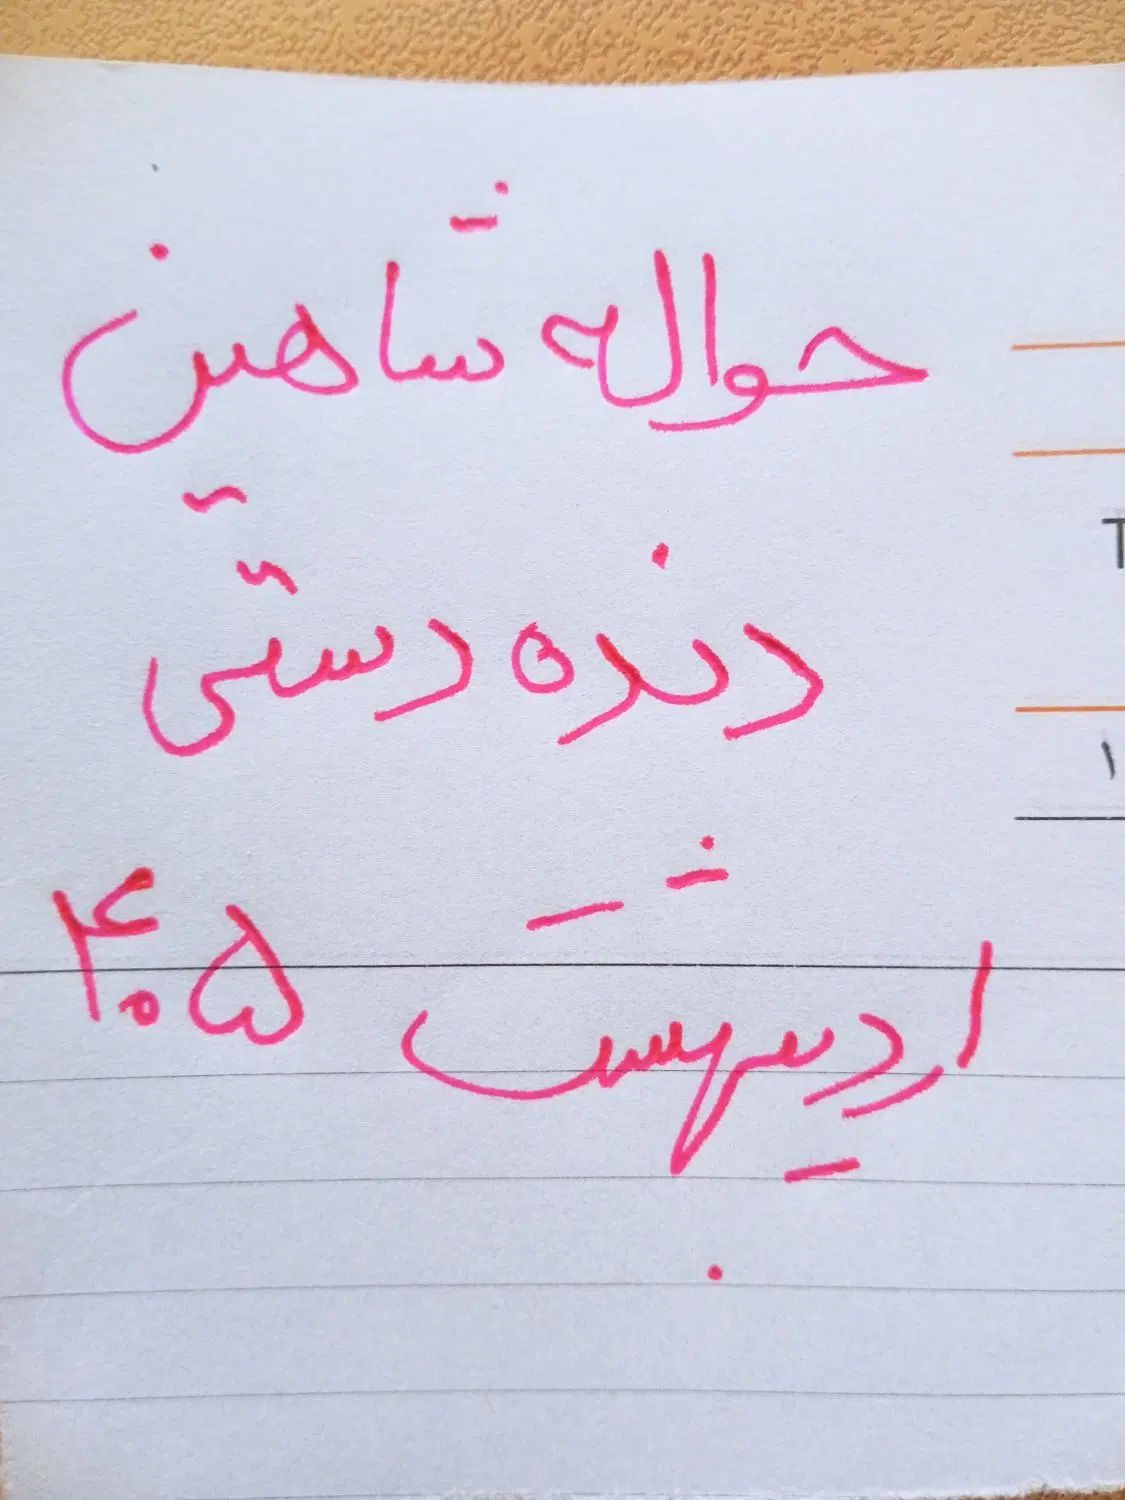 حواله شاهین
دنده دستی
اردیبهشت ۴۰۵
T
۱